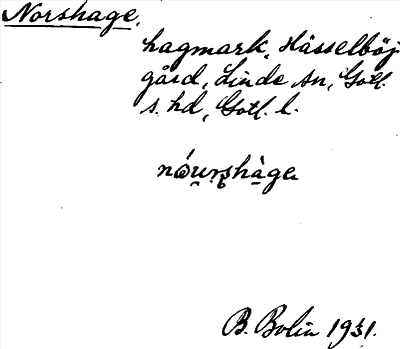 Norshage,
hagmark, Hässelböj
gård, Linde sn, Gotl.
s. hd, Gotl. l.
nóu̯rshàge
B. Bolin 1931.